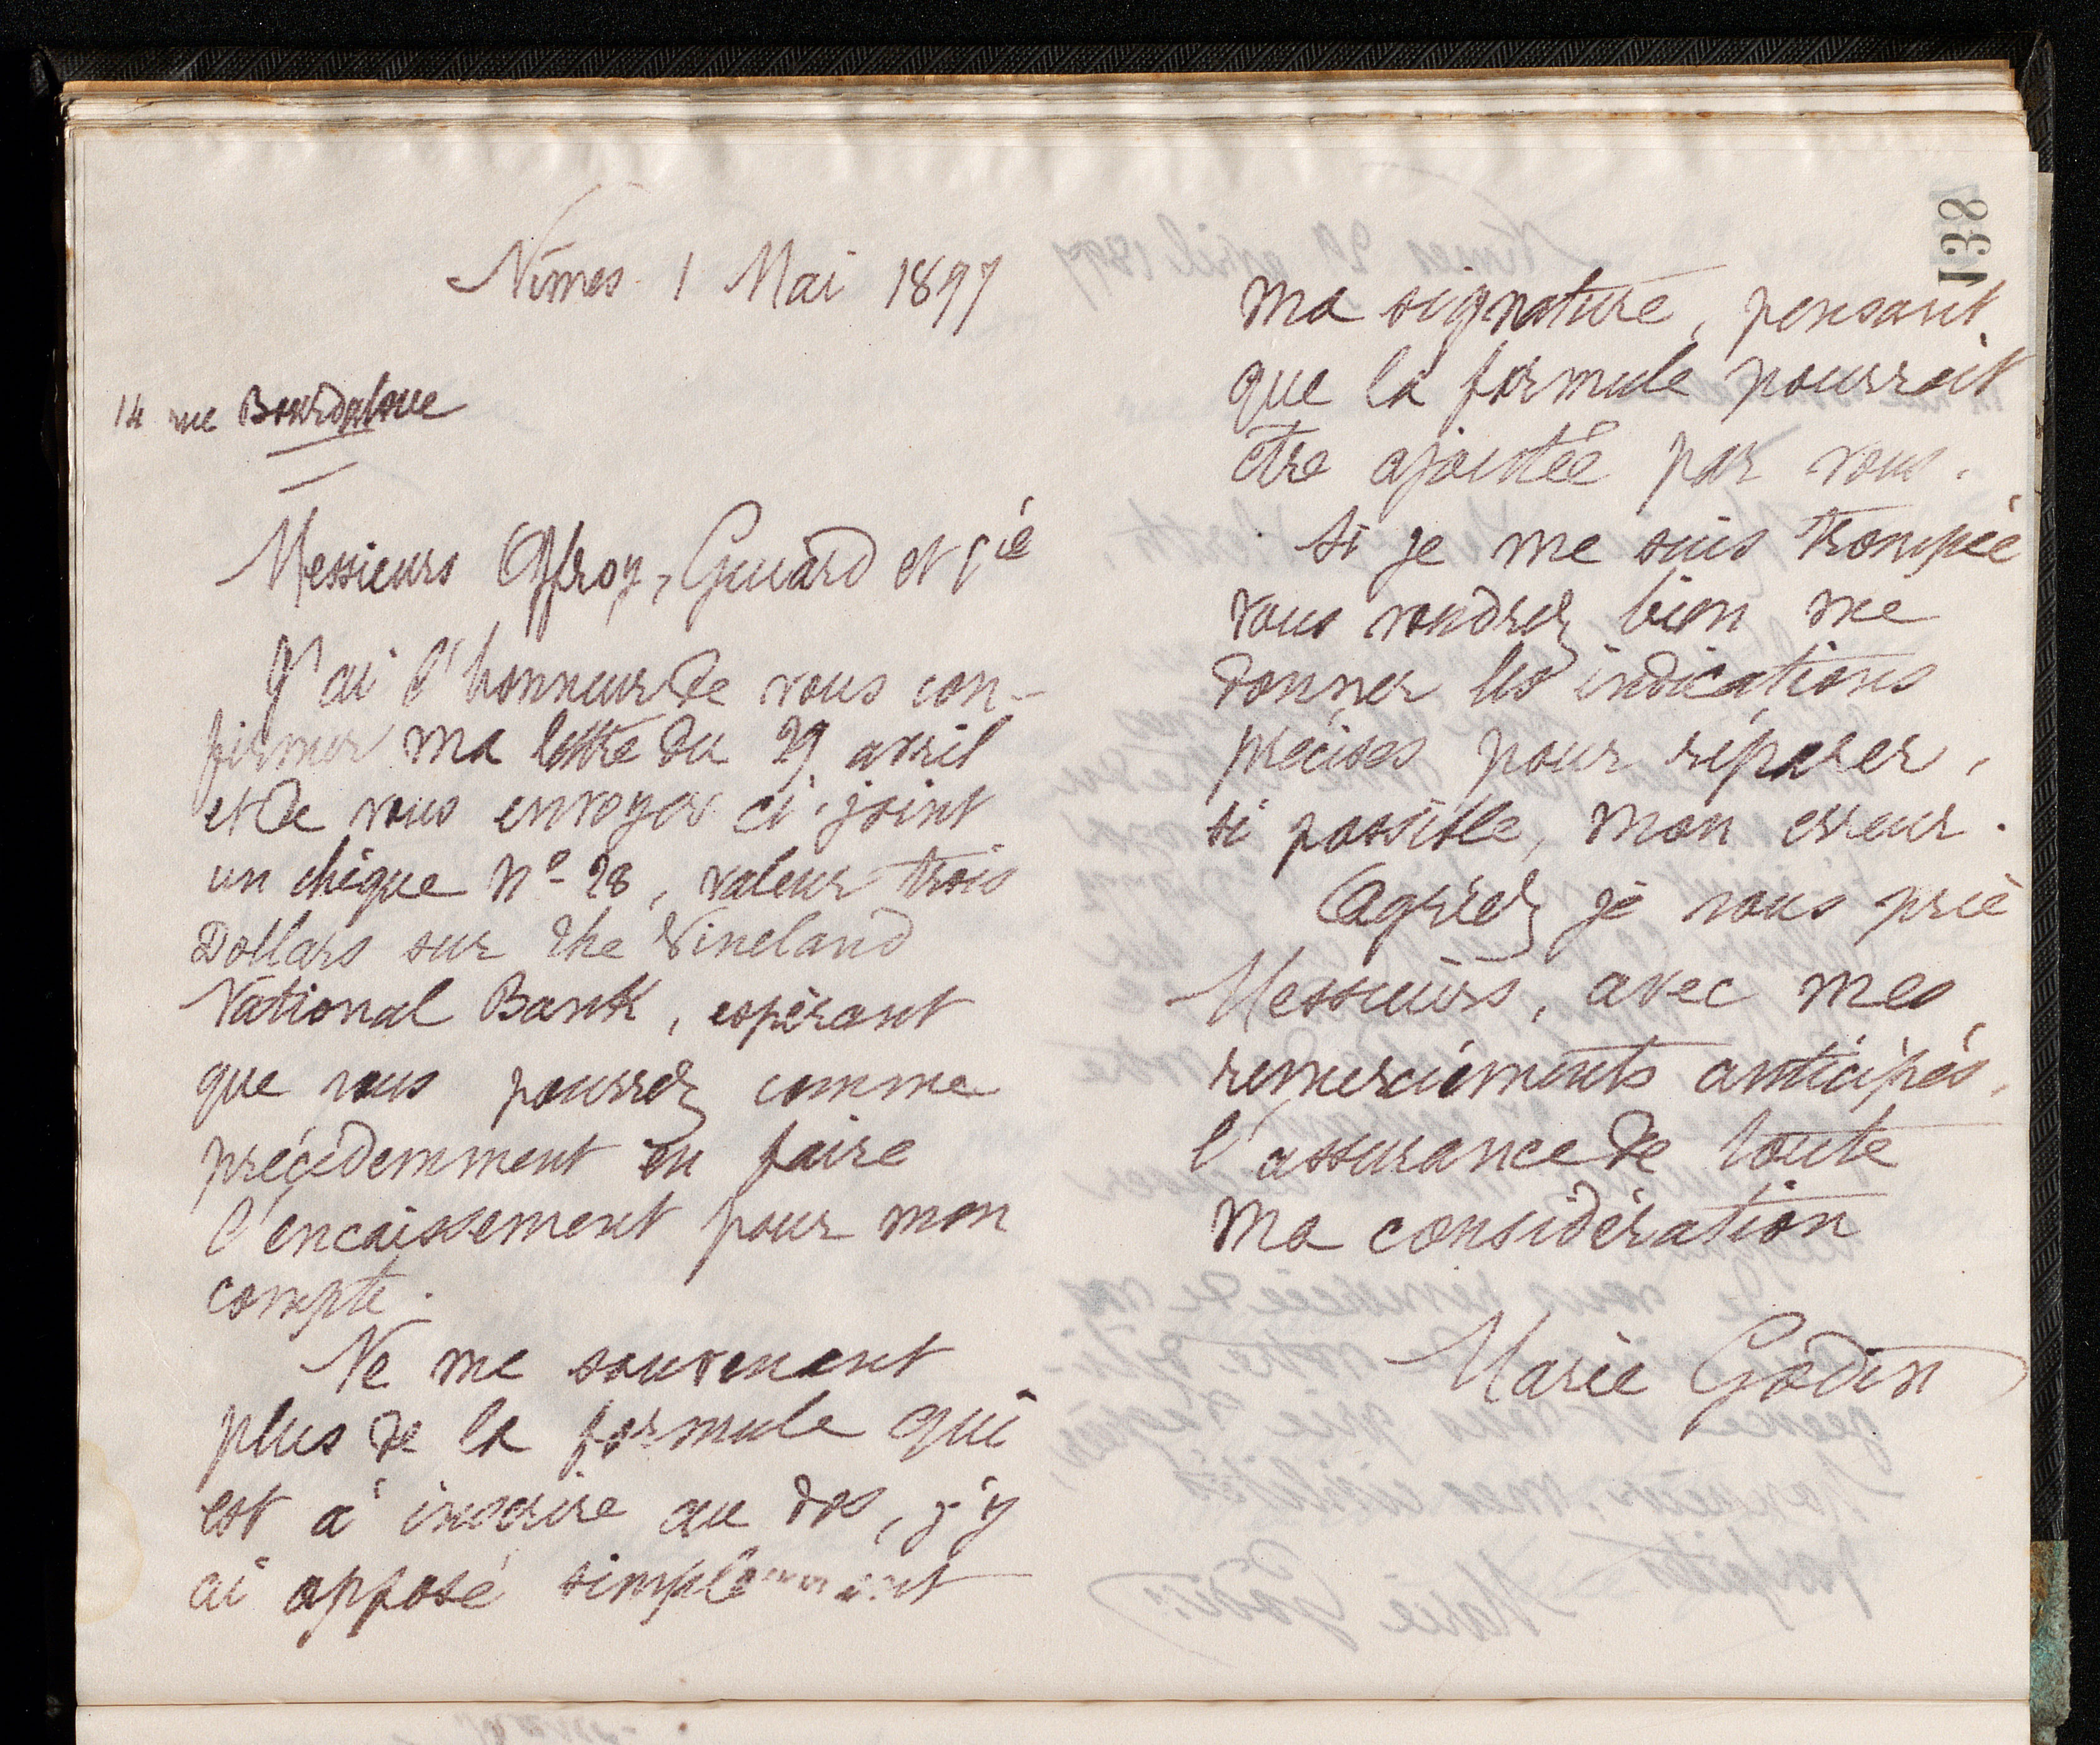 138
Nîmes 1 Mai 1897
14 rue Bourdaloue
Messieurs Offroy, Guiard et Cie
J'ai l'honneur de vous con-
firmer ma lettre du 29 avril
et de vous envoyer ci-joint
un chèque No 28, valeur trois
Dollars sur The Vineland
National Bank, espérant
que vous pourrez comme
précédemment en faire
l'encaissement pour mon
compte.
Ne me souvenant
plus de la formule qui
est à inscrire au dos, j'y
ai apposé simplement
ma signature, pensant
que la formule pourrait
être ajoutée par vous.
Si je me suis trompée
vous voudrez bien me
donner les indications
précises pour réparer,
si possible, mon erreur.
Agréez je vous prie
Messieurs, avec mes
remerciements anticipés,
l'assurance de toute
ma considération
Marie Godin